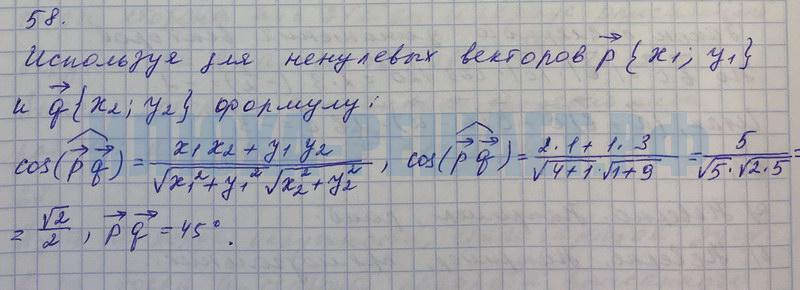 58.
Используя для ненулевых векторов p⃗ {x₁; y₁}
и q⃗ {x₂; y₂} формулу:
cos(p⃗ q⃗) = (x₁ x₂ + y₁ y₂) / (√(x₁² + y₁²) √(x₂² + y₂²)), cos(p⃗ q⃗) = (2·1 + 1·3) / (√(4+1) · √(1+9)) = 5 / (√5 · √(2·5)) =
= √2 / 2, p⃗ q⃗ = 45°.